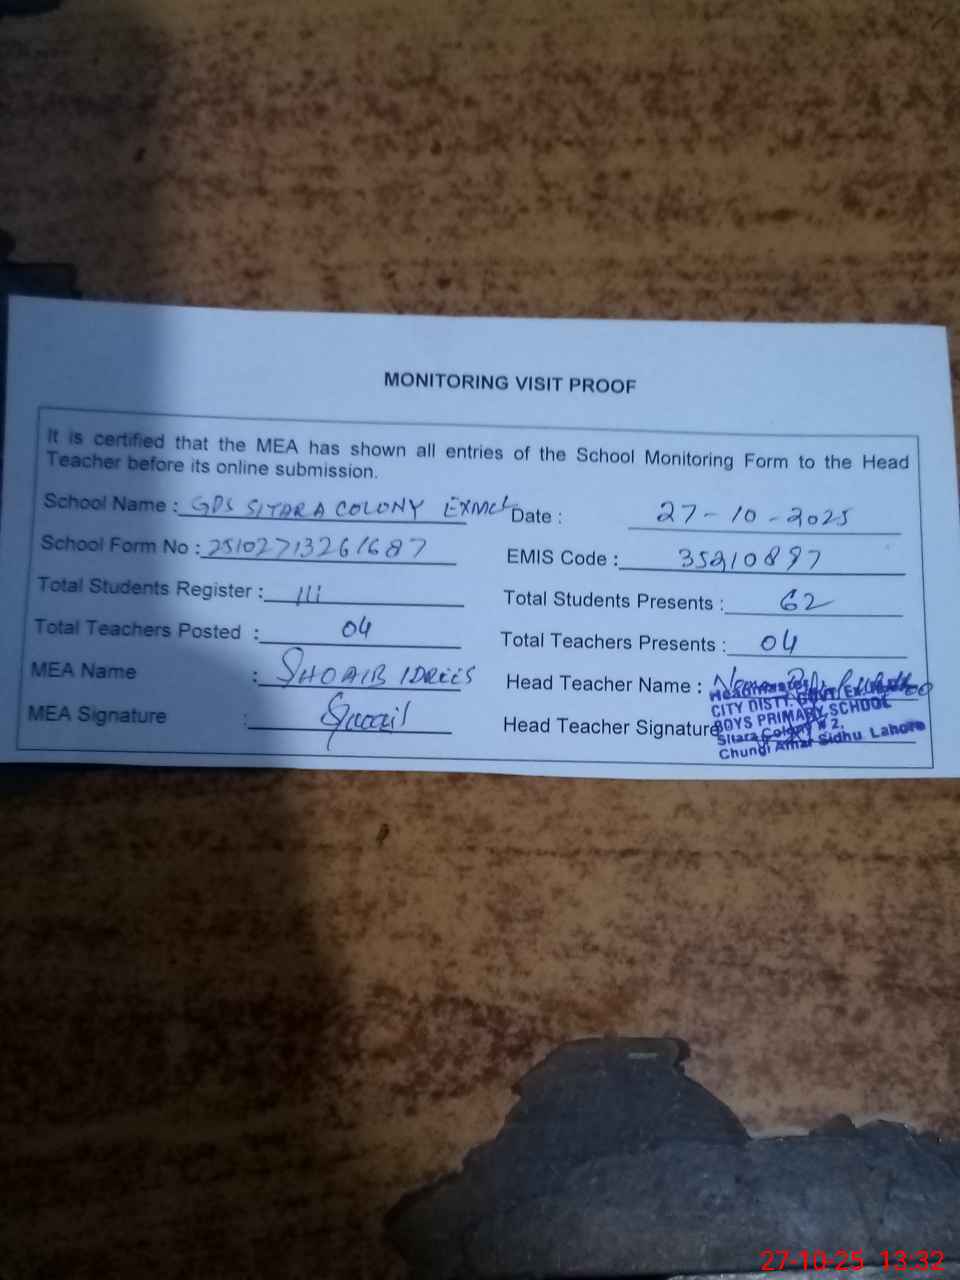 MONITORING VISIT PROOF
It is certified that the MEA has shown all entries of the School Monitoring Form to the Head
Teacher before its online submission.
School Name : GPS SITARA COLONY EXMCL Date : 27-10-2025
School Form No : 2510271326 1687 EMIS Code : 35210897
Total Students Register : 111 Total Students Presents : 62
Total Teachers Posted : 04 Total Teachers Presents : 04
MEA Name : SHOAIB IDREES Head Teacher Name :
MEA Signature : Head Teacher Signature
Headmaster
CITY DISTT. GOVT.
BOYS PRIMARY SCHOOL
Sitara Colony # 2.
Chungi Amar Sidhu Lahore
27-10-25 13:32